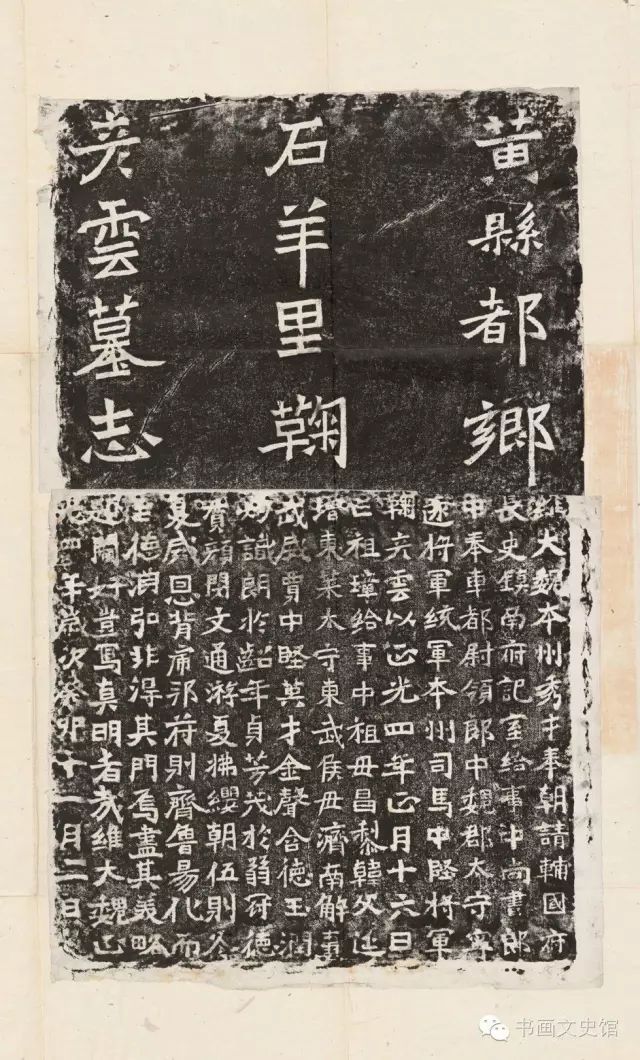 黃縣都鄉
石羊里鞠
彥雲墓志
維大魏本州秀才奉朝請輔國府
長史鎮南府記室給事中尚書郎
中奉車都尉領郎中魏郡太守寧
遠將軍統軍本州司馬中堅將軍
鞠彥雲以正光四年正月十六日
亡祖璋給事中祖母昌黎韓父延
增東萊太守東武侯母濟南解妻
武威賈中堅英才金聲含德玉潤
灼識朗於齠年貞芳茂於弱冠德
顏閔文通游夏拂纓朝伍則令
威恩背府邪苻則齊魯易化而
至德潤弘非得其門焉盡其美略
述聞好豈寫真明者哉維大魏正
光四年歲次癸卯十一月二日
书画文史馆